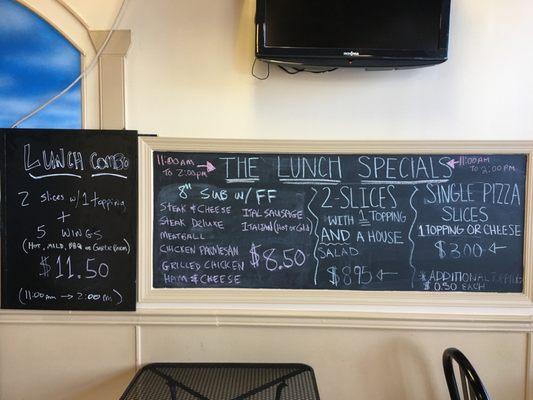 INSIGNIA
LUNCH COMBO
2 SLICES W/ 1 TOPPING
+
5 WINGS
(HOT, MILD, BBQ OR Garlic Parm)
$11.50
(11:00am → 2:00pm)
11:00 AM TO 2:00PM → THE LUNCH SPECIALS ← 11:00AM TO 2:00 PM
8" SUB W/ FF
STEAK & CHEESE
STEAK DELUXE
MEATBALL
CHICKEN PARMESAN
GRILLED CHICKEN
HAM & CHEESE
ITAL SAUSAGE
ITALIAN (Hot or Cold)
$8.50
2-SLICES
WITH 1 TOPPING
AND A HOUSE
SALAD
$8.95 ←
SINGLE PIZZA
SLICES
1 TOPPING OR CHEESE
$3.00 ←
*ADDITIONAL TOPPINGS
$0.50 EACH